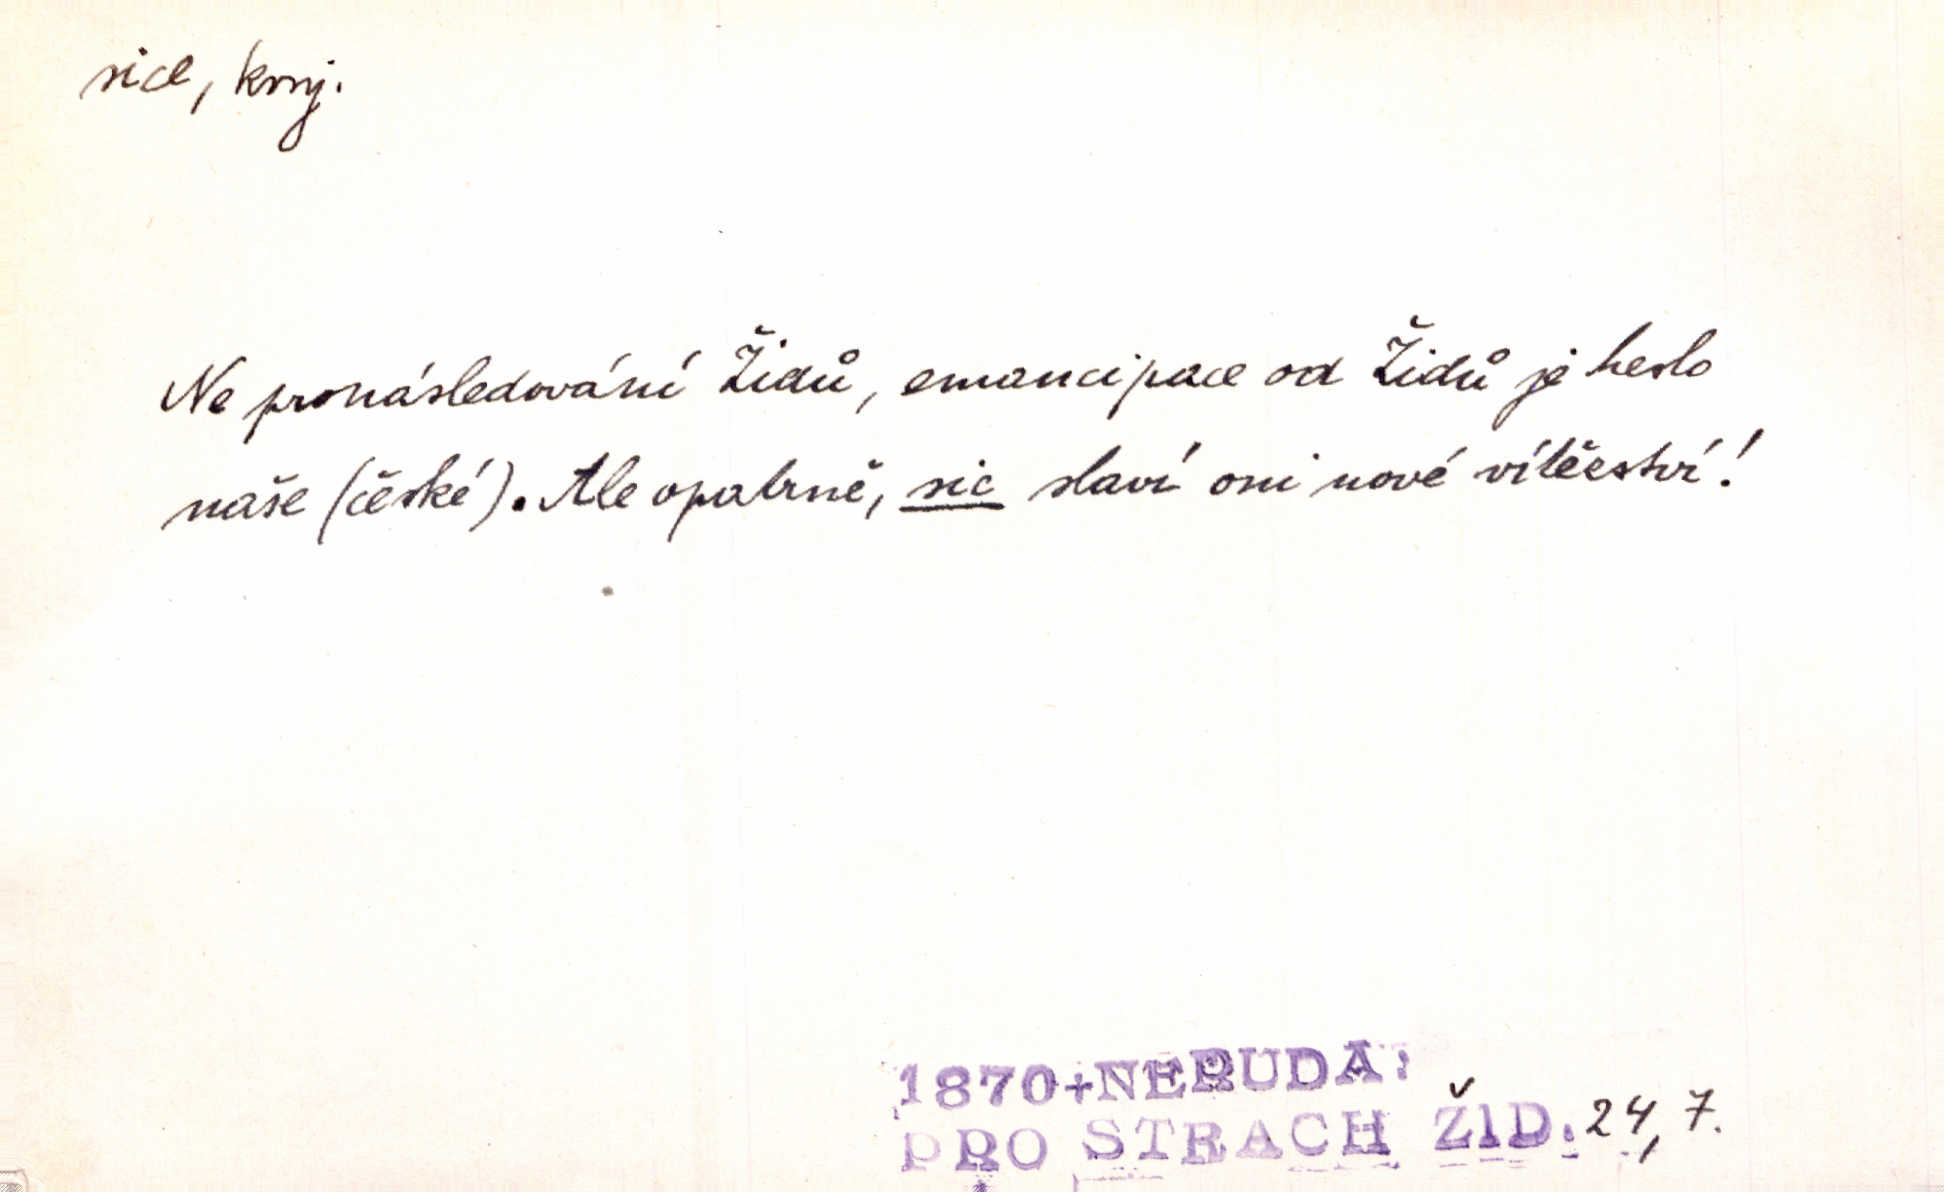 sice, konj.
Ne pronásledování Židů, emancipace od Židů je heslo
naše (české). Ale opatrně, sic slaví oni nové vítěsství!
1870+NERUDA:
PRO STRACH ŽID. 24, 7.